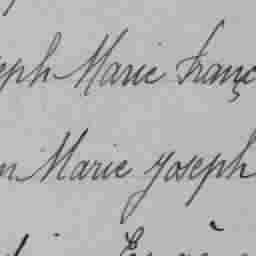 eph Marie Franç
n Marie Joseph